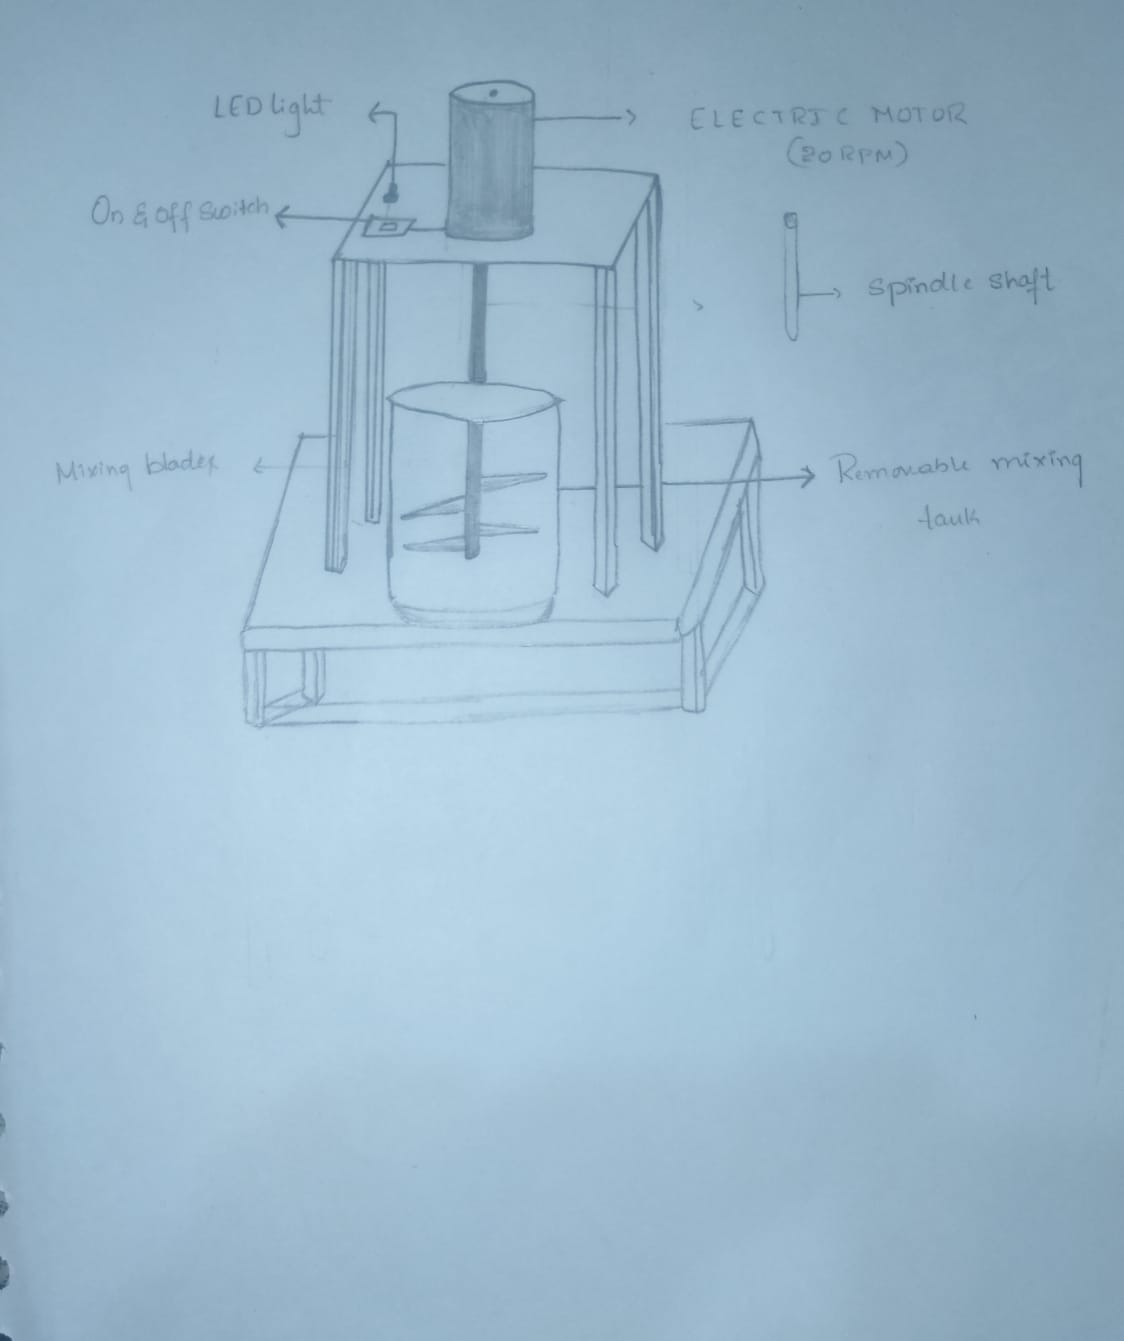 LED light
ELECTRIC MOTOR
(20 RPM)
On & off Switch
Spindle shaft
Mixing blades
Removable mixing
tank